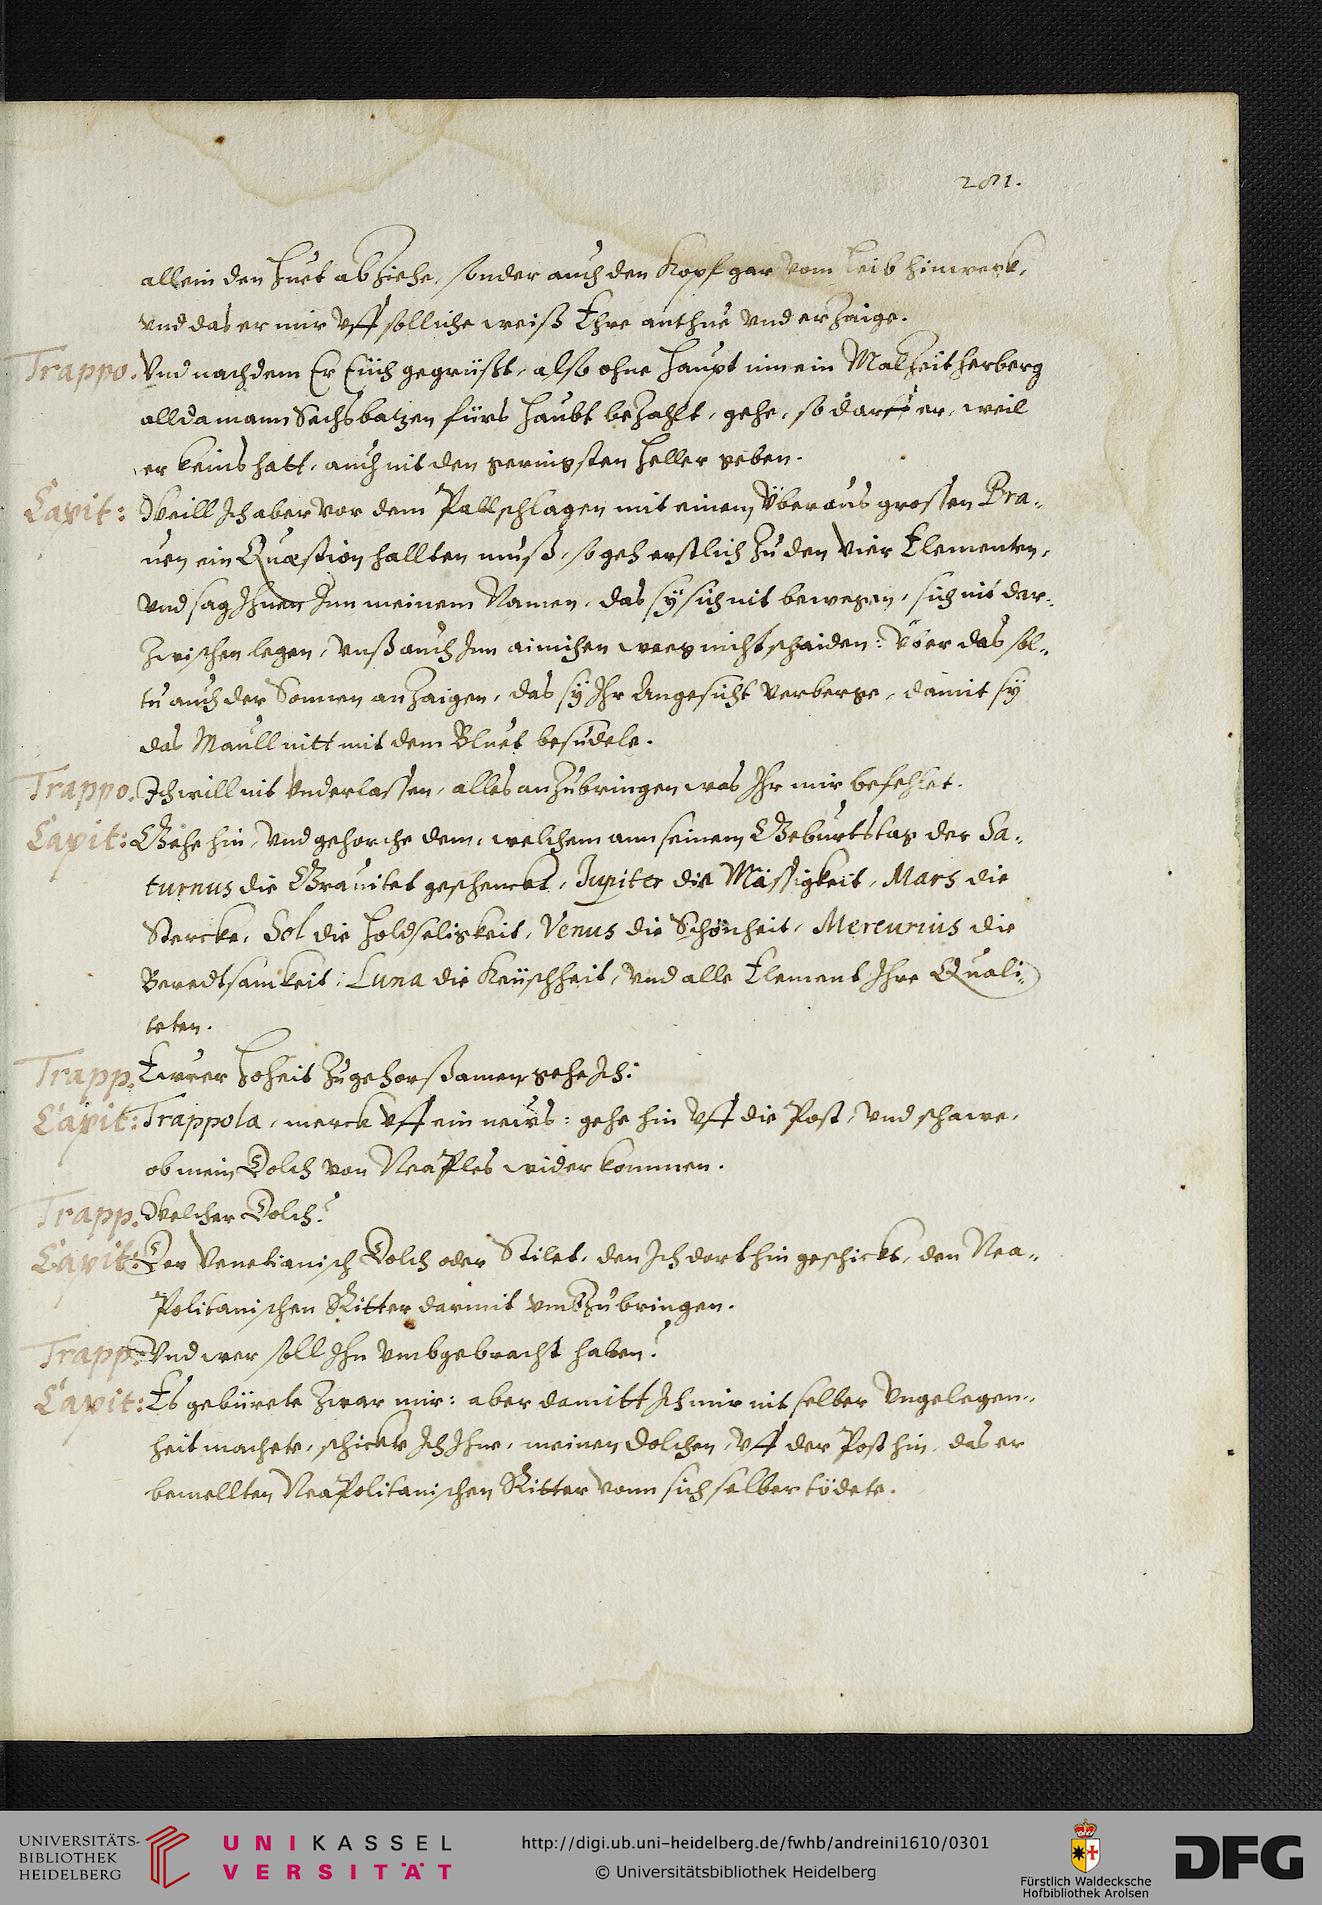 281.
allein den Huet abziehe, sonder auch den Kopf gar vom Leib hinwerk,
vnd das er mir vff solliche weiß Ehre anthue vnd erzaige.
Trappo. Vnd nachdem Er Eüch gegrüßt, also ohne Haupt inn ein Malzeit herberg
allda mann Sechs batzen fürs Haubt bezahlt, gehe, so darff er, weil
er keins hatt, auch nit den geringsten Heller geben.
Capit: Weill Ich aber vor dem Pallschlagen mit einem Überaus grossen Bra-
uen ein Quæstion hallten muß, so geh erstlich zu den Vier Elementen,
vnd sag Ihnen Inn meinem Namen, das sÿ sich nit bewegen, sich nit dar-
zwischen legen, vnß auch Inn ainichen weeg nicht schaiden: Vber das sol-
tu auch der Sonnen anzaigen, das sÿ Ihr Angesicht verberge, damit sÿ
das Maull nitt mit dem Bluet besudele.
Trappo. Ich will nit Vnderlassen, alles anzubringen was Ihr mir befehlet.
Capit: Gehe hin, vnd gehorche dem, welchem ann seinem Geburtstag der Sa-
turnus die Grauitet geschenckt, Jupiter die Mässigkeit, Mars die
Stercke, Sol die Holdseligkeit, Venus die Schönheit, Mercurius die
Beredtsamkeit, Luna die Keüschheit, vnd alle Element Ihre Quali-
teten.
Trapp. Ewrer Hoheit zugehorßamen gehe Ich.
Capit: Trappola, merck vff ein neüws: gehe hin vff die Post, vnd schawe,
ob mein Dolch von Neaples wider kommen.
Trapp. Welcher Dolch?
Capit: Der Venetianisch Dolch oder Stilet, den Ich dorthin geschickt, den Nea-
Politanischen Ritter darmit vmbzubringen.
Trapp: Vnd wer soll Ihn vmbgebracht haben?
Capit: Es gebürete zwar mir: aber damitt Ich mir nit selber Vngelegen-
heit machete, schickte Ich Ihne, meinen Dolchen, vff der Post hin, das er
bemellten Neapolitanischen Ritter vonn sich selber tödete.
UNIVERSITÄTS-
BIBLIOTHEK
HEIDELBERG
UNIKASSEL
VERSITÄT
http://digi.ub.uni-heidelberg.de/fwhb/andreini1610/0301
© Universitätsbibliothek Heidelberg
Fürstlich Waldecksche
Hofbibliothek Arolsen
DFG